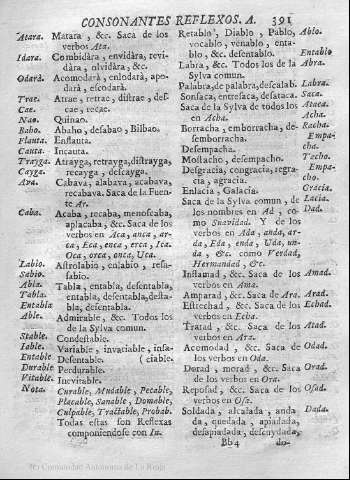 CONSONANTES REFLEXOS. A. 391
Atara. Matara, &c. Saca de los
verbos Ata.
Idara. Combidàra, envidàra, revi-
dàra, olvidàra, &c.
Odarà. Acomodarà, enlodarà, apo-
darà, escodarà.
Trae. Atrae, retrae, distrae, des-
Cae. cae, recae.
Nao. Quinao.
Baho. Abaho, desabao, Bilbao.
Flauta. Enflauta.
Canta. Incauta.
Trayga. Atrayga, retrayga, distrayga,
Cayga. recayga, descayga.
Ava. Cabava, alabava, acabava,
recabava. Saca de la Fuen-
te Ar.
Caba. Acaba, recaba, menoscaba,
aplacaba, &c. Saca de los
verbos en Aca, anca, ar-
ca, Eca, enca, erca, Ica.
Oca, orca, onca, Uca.
Labio. Astrolabio, enlabio, resa-
Sabio. sabio.
Abla. Tabla, entabla, desentabla,
Tabla. entabla, desentabla, desta-
Entabla bla, desentabla.
Able. Admirable, &c. Todos los
de la Sylva comun.
Stable. Condestable.
Iable. Variable, invariable, insa-
Entable Desentable. (ciable.
Durable Perdurable.
Vitable. Inevitable.
Nota. Curable, Mudable, Pecable,
Placable, Sanable, Domable,
Culpable, Tratable, Probab.
Todas estas son Reflexas
componiendose con In.
Retablo, Diablo, Pablo, Ablo.
vocablo, venablo, enta-
blo, &c. desentablo. Entablo
Labra, &c. Todos los de la Abra.
Sylva comun.
Palabra, de palabra, descalab. Labra.
Sonsaca, entresaca, desataca. Saca.
Saca de la Sylva de todos los Ataca.
en Acha. Acha.
Borracha, emborracha, de- Racha.
semborracha. Empa-
Desempacha. cha.
Mostacho, desempacho. Tacho.
Desgracia, congracia, regra- Empa-
cia, agracia. cho.
Enlacia, Galacia. Gracia.
Saca de la Sylva comun, de Lacia.
los nombres en Ad, co- Dad.
mo Suavidad. Y de los
verbos en Ada, anda, ar-
da, Eda, enda, Uda, un-
da, &c. como Verdad,
Hermandad, &c.
Inflamad, &c. Saca de los Amad.
verbos en Ama.
Amparad, &c. Saca de Ara. Arad.
Estrechad, &c. Saca de los Echad.
verbos en Echa.
Tratad, &c. Saca de los Atad.
verbos en Ata.
Acomodad, &c. Saca de Odad.
los verbos en Oda.
Dorad, morad, &c. Saca Orad.
de los verbos en Ora.
Reposad, &c. Saca de los Osad.
verbos en Ose.
Soldada, alcalada, anda Dada.
da, quedada, apiadada,
desapiadada, desnudada,
Bb4 do-
(c) Comunidad Autónoma de La Rioja